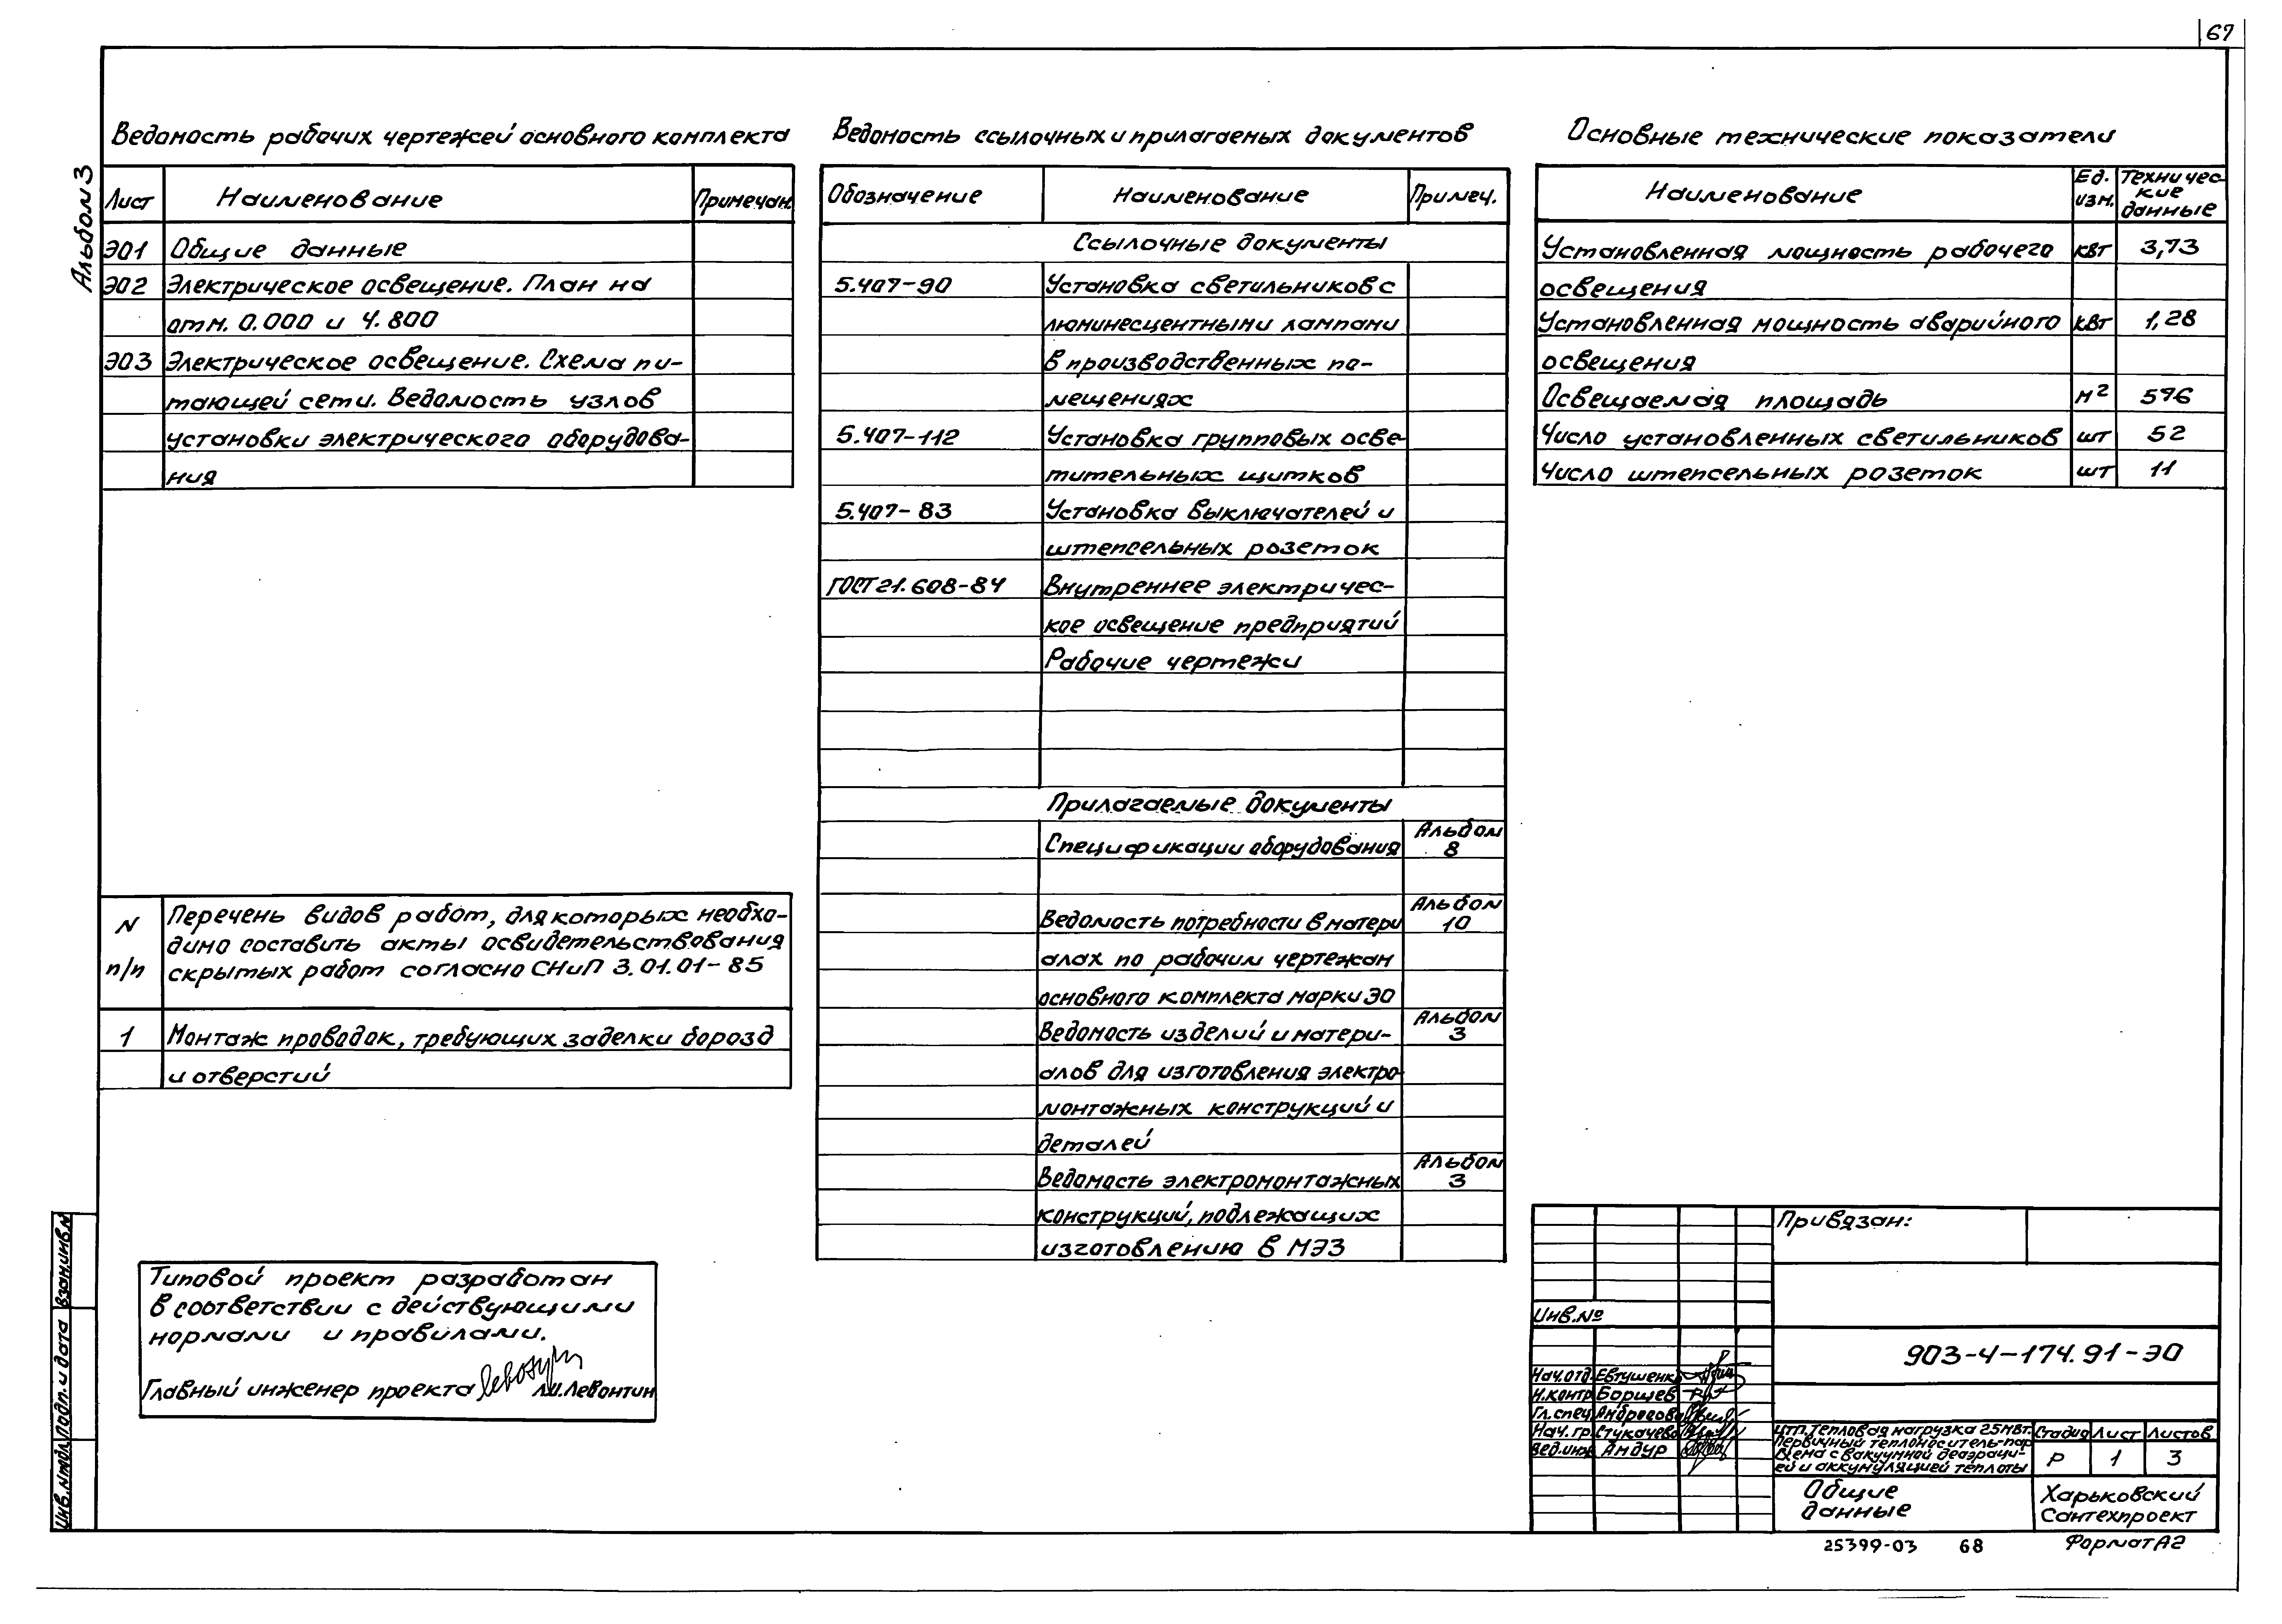 67
Альбом 3
Ведомость рабочих чертежей основного комплекта
Лист Наименование Примечан.
ЭО1 Общие данные
ЭО2 Электрическое освещение. План на
отм. 0.000 и 4.800
ЭО3 Электрическое освещение. Схема пи-
тающей сети. Ведомость узлов
установки электрического оборудова-
ния
N п/п
Перечень видов работ, для которых необхо-
димо составить акты освидетельствования
скрытых работ согласно СНиП 3.01.01-85
1 Монтаж проводок, требующих заделки борозд
и отверстий
Типовой проект разработан
в соответствии с действующими
нормами и правилами.
Главный инженер проекта Л.И.Левонтин
Ведомость ссылочных и прилагаемых документов
Обозначение Наименование Примеч.
Ссылочные документы
5.407-90 Установка светильников с
люминесцентными лампами
в производственных по-
мещениях
5.407-112 Установка групповых осве-
тительных щитков
5.407-83 Установка выключателей и
штепсельных розеток
ГОСТ 21.608-84 Внутреннее электричес-
кое освещение предприятий
Рабочие чертежи
Прилагаемые документы
Спецификации оборудования Альбом 8
Ведомость потребности в матери Альбом 10
алах по рабочим чертежам
основного комплекта марки ЭО
Ведомость изделий и матери- Альбом 3
алов для изготовления электро-
монтажных конструкций и
деталей
Ведомость электромонтажных Альбом 3
конструкций, подлежащих
изготовлению в МЭЗ
Основные технические показатели
Наименование Ед. изм. Техничес-кие данные
Установленная мощность рабочего квт 3,73
освещения
Установленная мощность аварийного квт 1,28
освещения
Освещаемая площадь м² 576
Число установленных светильников шт 52
Число штепсельных розеток шт 11
Привязан:
Инв.№
903-4-174.91-ЭО
Нач.отд. Евтушенко
Н.контр Борщев
Гл.спец
Нач.гр.
Вед.инж Амдур
ЦТП. Тепловая нагрузка 25МВт.
Первичный теплоноситель-пар
Схема с вакуумной деаэраци-
ей и аккумуляцией теплоты
Стадия Лист Листов
Р 1 3
Общие
данные
Харьковский
Сантехпроект
25399-03 68 Формат А2
Взам.инв.№
Подп. и дата
Инв.№подл.